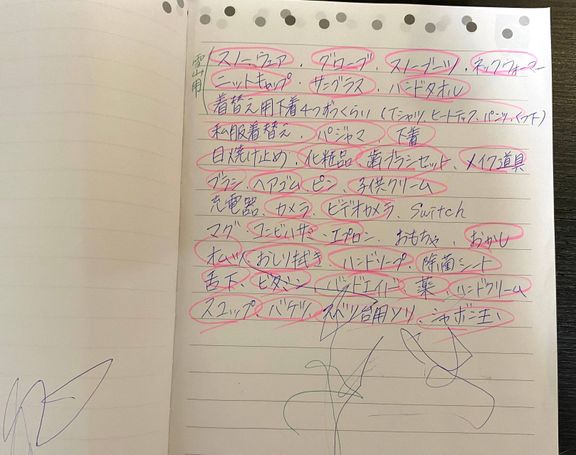 雪山用
スノーウェア、グローブ、スノーブーツ、ネックウォーマー
ニットキャップ、サングラス、ハンドタオル
着替え用下着4つずつくらい(Tシャツ、ヒートテック、パンツ、くつ下)
私服着替え、パジャマ、下着
日焼け止め、化粧品、歯ブラシセット、メイク道具
ブラシ、ヘアゴム、ピン、子供クリーム
充電器、カメラ、ビデオカメラ、Switch
マグ、コンビハサミ、エプロン、おもちゃ、おかし
オムツ、おしり拭き、ハンドソープ、除菌シート
舌下、ビタミン、バンドエイド、薬、ハンドクリーム
スコップ、バケツ、スベリ台用ソリ、シャボン玉